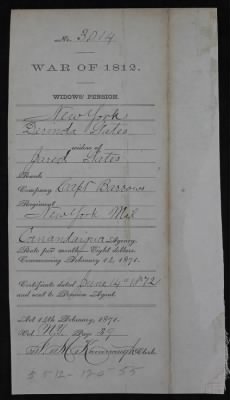 No. 3014
WAR OF 1812.
WIDOWS' PENSION.
New York
Derinda States
widow of
Jared States
Rank
Company Capt Barrows
Regiment
New York Mil
Canandaigua Agency.
Rate per month, Eight Dollars.
Commencing February 14, 1871.
Certificate dated June 14th 1872
and sent to Pension Agent.
Act 14th February, 1871.
Vol. N.Y. Page 39
Clerk.